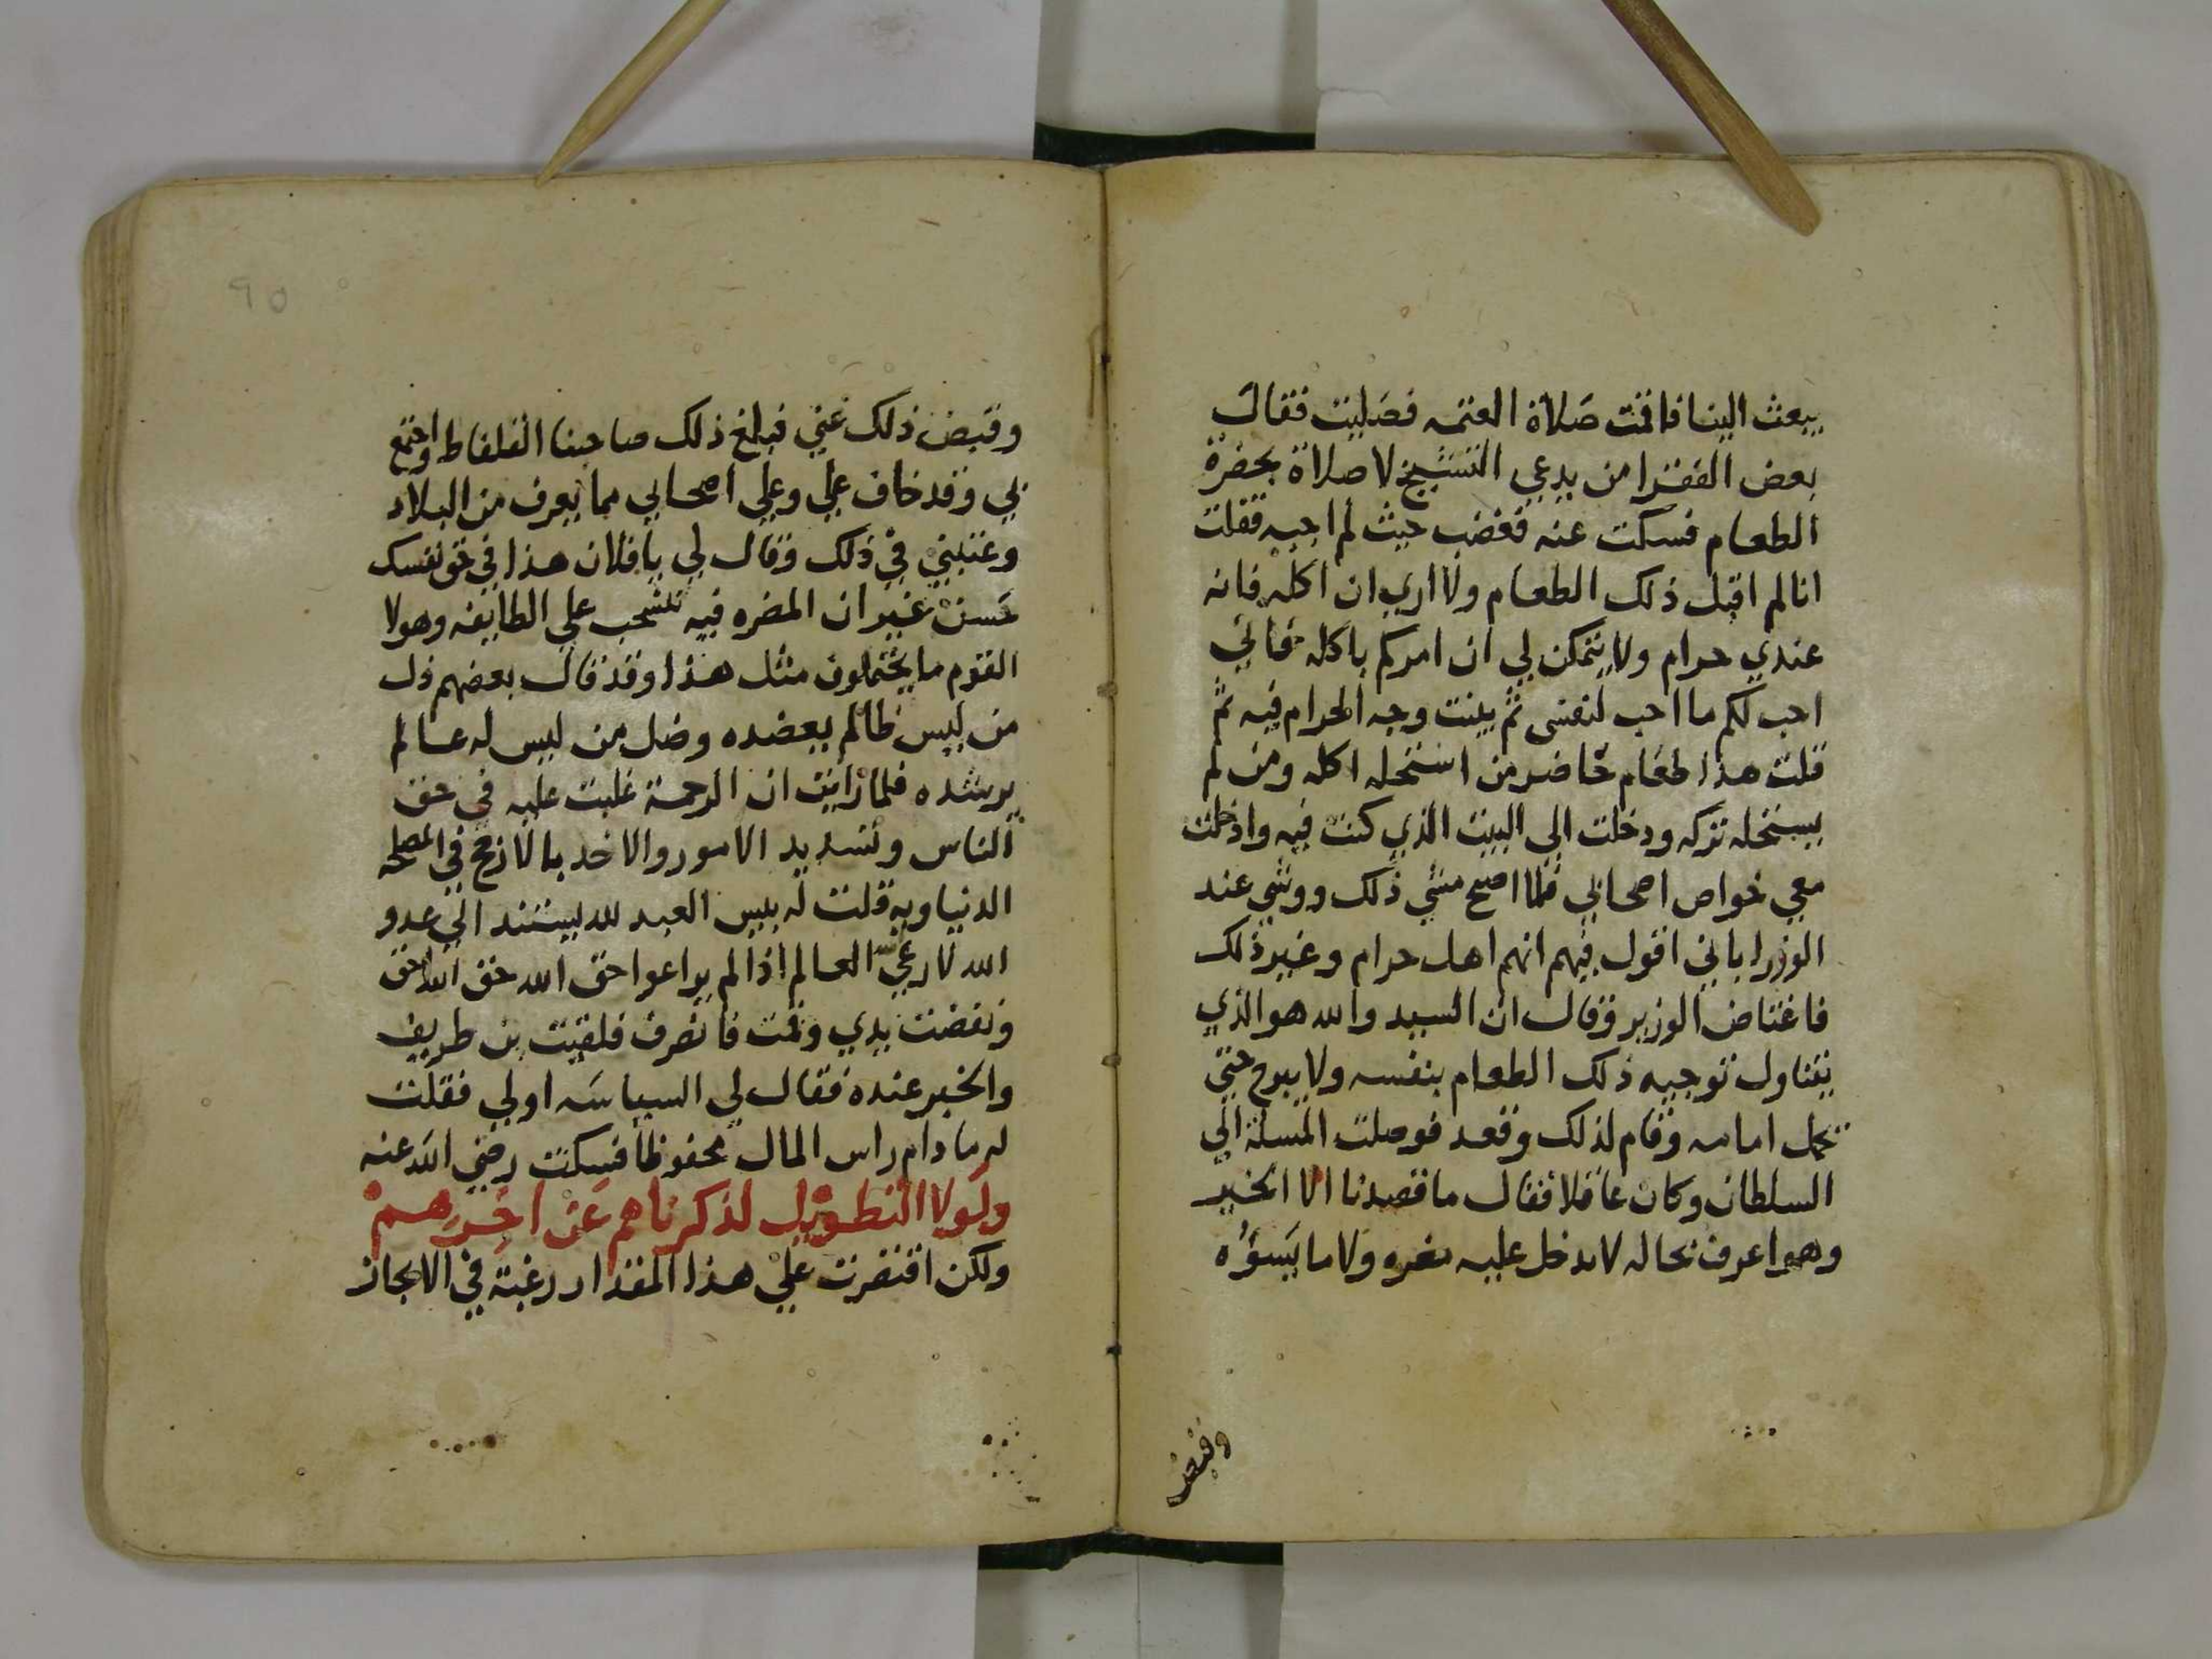 يبعث الينا فاقمت صلاة العتمه فصليت فقال
بعض الفقرا من يدعي التشيخ لا صلاة بحضرة
الطعام فسكت عنه فغضب حيث لم اجبه فقلت
انا لم اقبل ذلك الطعام ولا اري ان اكله فانه
عندي حرام ولا يتمكن لي ان امركم باكله فاني
احب لكم ما احب لنفسى ثم بينت وجه الحرام فيه ثم
قلت هذا طعام حاضر من استحله اكله ومن لم
يستحله تركه ودخلت الي البيت الذي كنت فيه وادخلت
معي خواص اصحابي فلما اصبح مشي ذلك ووشي عند
الوزرا باني اقول فيهم انهم اهل حرام وغير ذلك
فاغتاض الوزير وقال ان السيد والله هو الذي
يتناول توجيه ذلك الطعام بنفسه ولا يبرح حتي
تحمل امامه وقام لذلك وقعد فوصلت المسلة الي
السلطان وكان عاقلا فقال ما قصدنا الا الخير
وهو اعرف بحاله لا يدخل عليه ولا ما يسؤه
وقبض
٩٥
وقبض ذلك عني فبلغ ذلك صاحبنا القلفاط واجتمع
بي وقد خاف علي وعلي اصحابي مما يعرف من البلاد
وعتبني في ذلك وقال لي يا فلان هذا في حق نفسك
حسن غير ان المضره فيه تنسحب علي الطايفه وهولا
القوم ما يحتملون مثل هذا وقد قال بعضهم ذل
من ليس ظالم يعضده وضل من ليس له عالم
يرشده فلما رايت ان الرحمة غلبت عليه في حق
الناس وتسديد الامور والاخد بالارجح في المصلحه
الدنياويه قلت له بيس العبد لله يستند الي عدو
الله لا رعي الله العالم اذا لم يراعوا حق الله حق الله احق
ونفضت يدي وقمت فانصرف فلقيت بن طريف
والخبر عنده فقال لي السياسه اولي فقلت
له ما دام راس المال محفوظا فسكت رضي الله عنه
ولولا التطويل لذكرناهم عن اخرهم
ولكن اقتصرت علي هذا المقدار رغبة في الايجاز